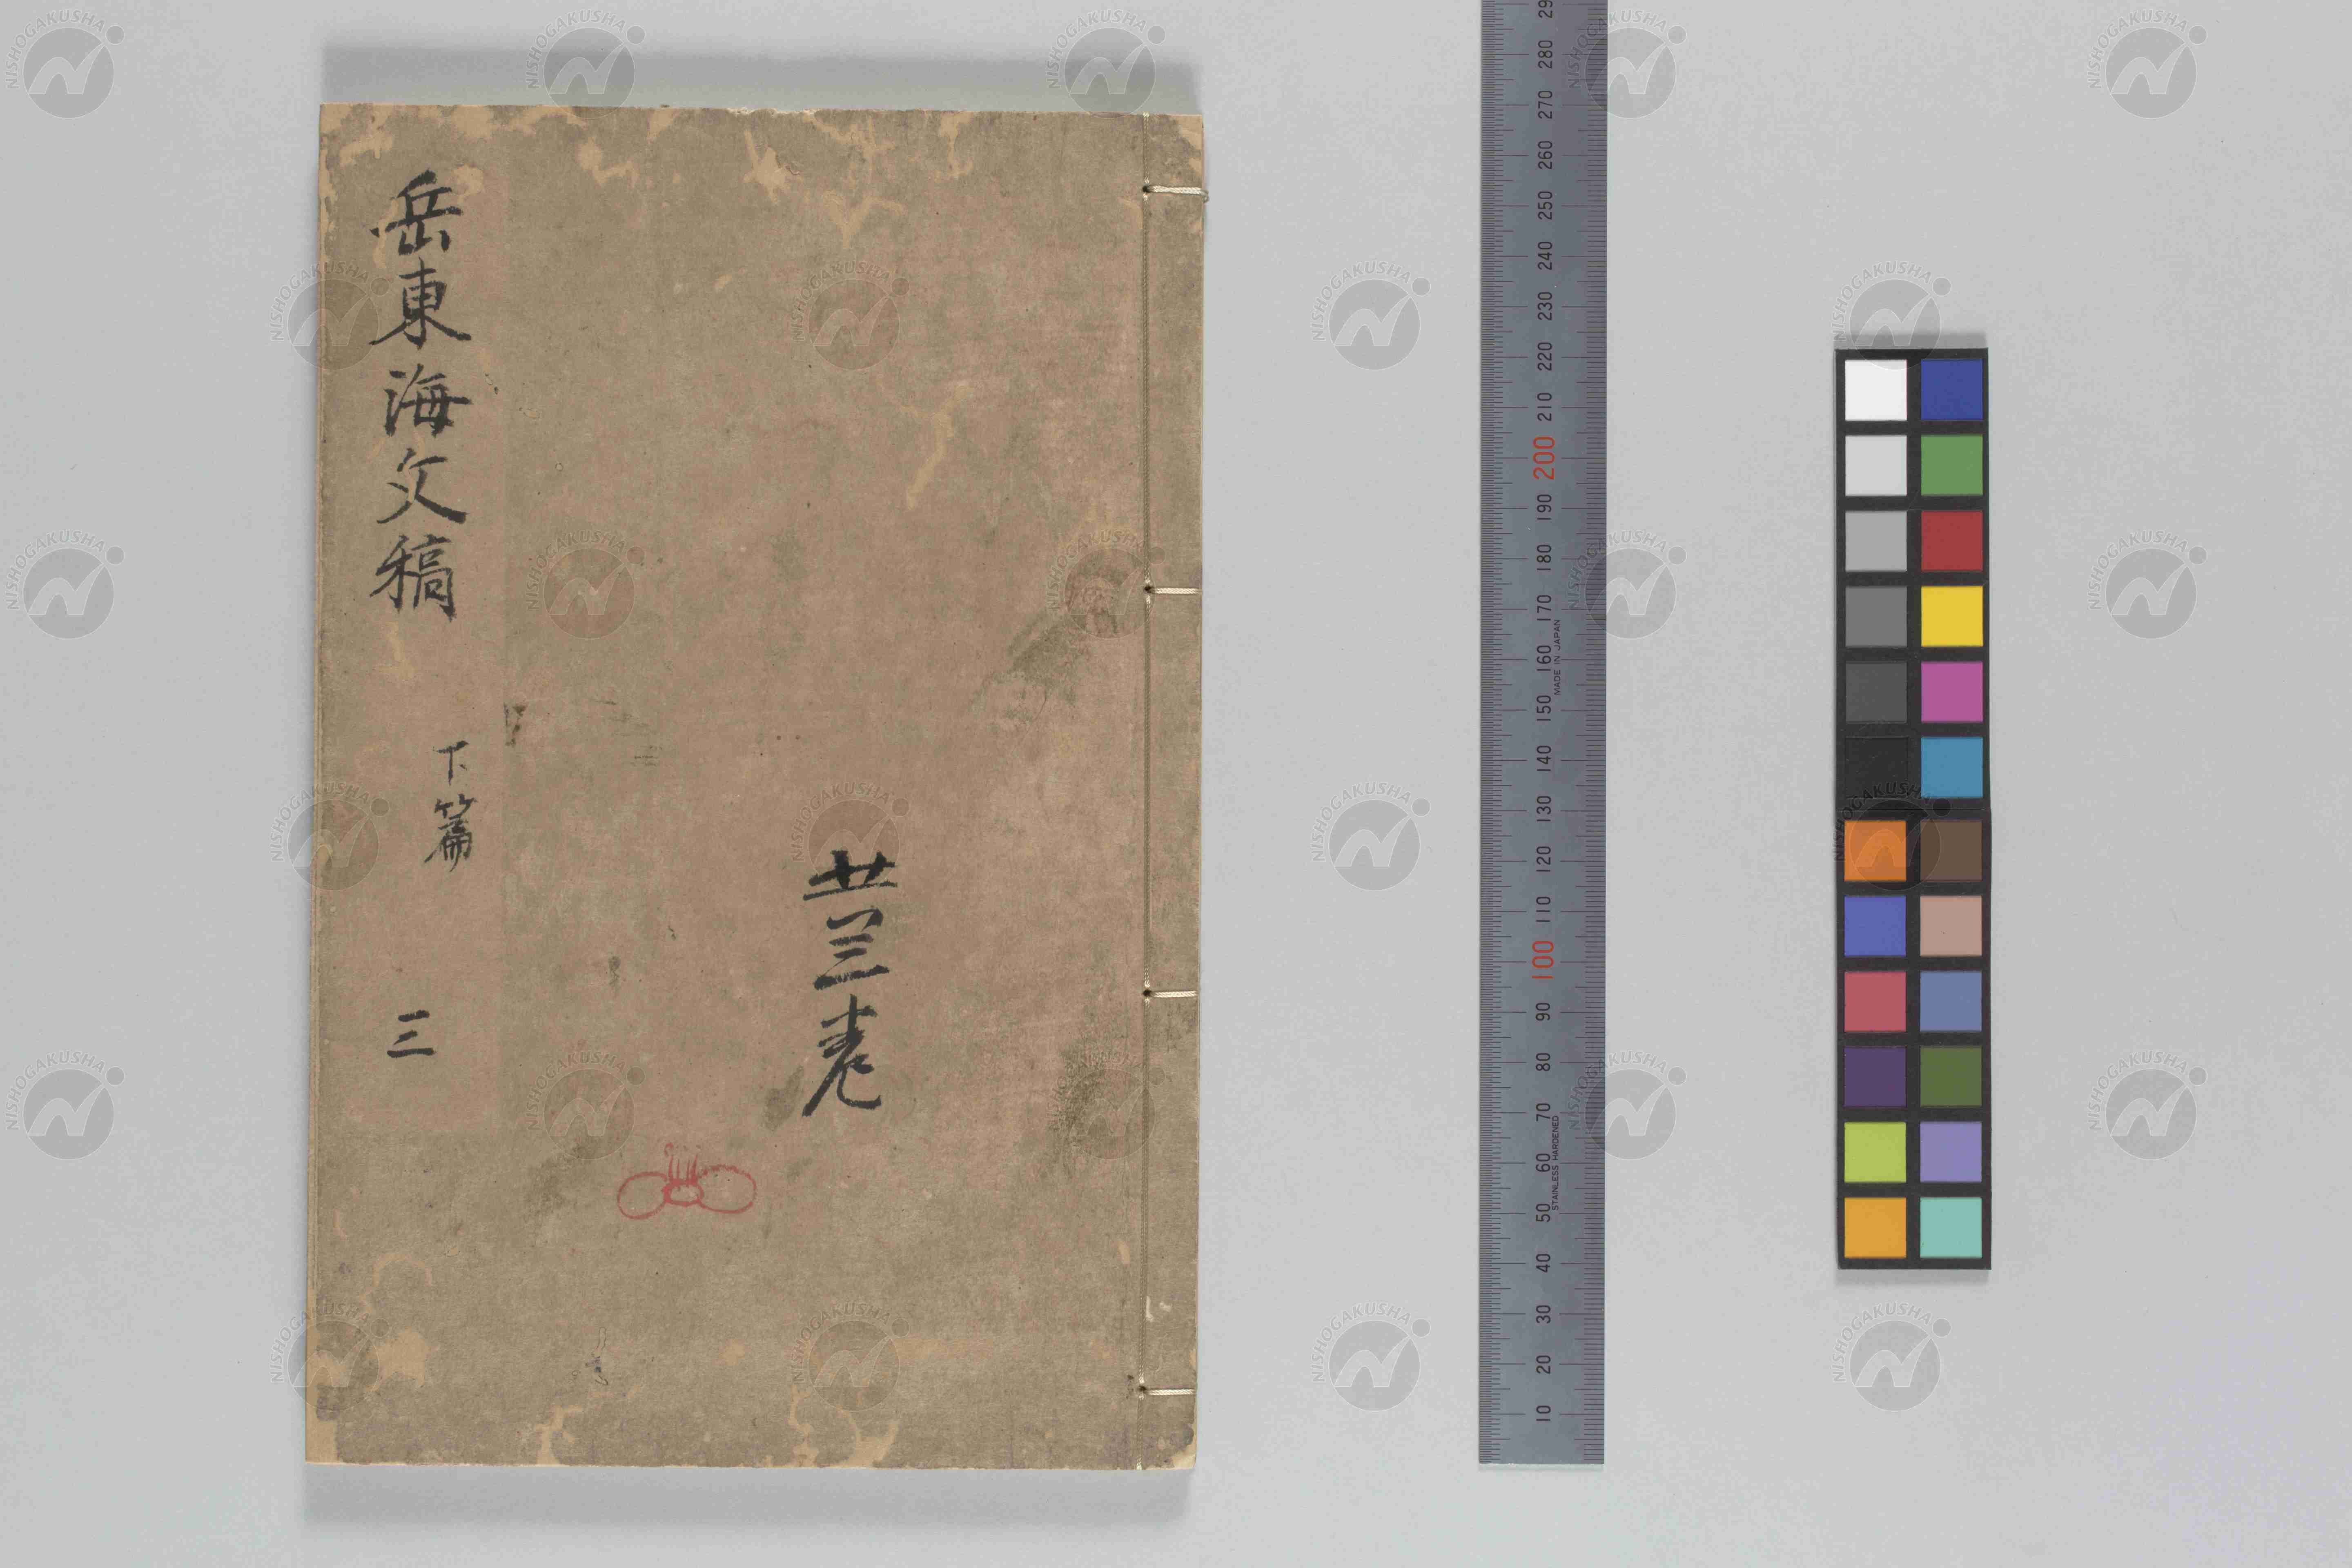 共三巻
岳東海文稿 下篇 三
290
280
270
260
250
240
230
220
210
200
190
180
170
160
150
140
130
120
110
100
90
80
70
60
50
40
30
20
10
MADE IN JAPAN
STAINLESS HARDENED
NISHOGAKUSHA